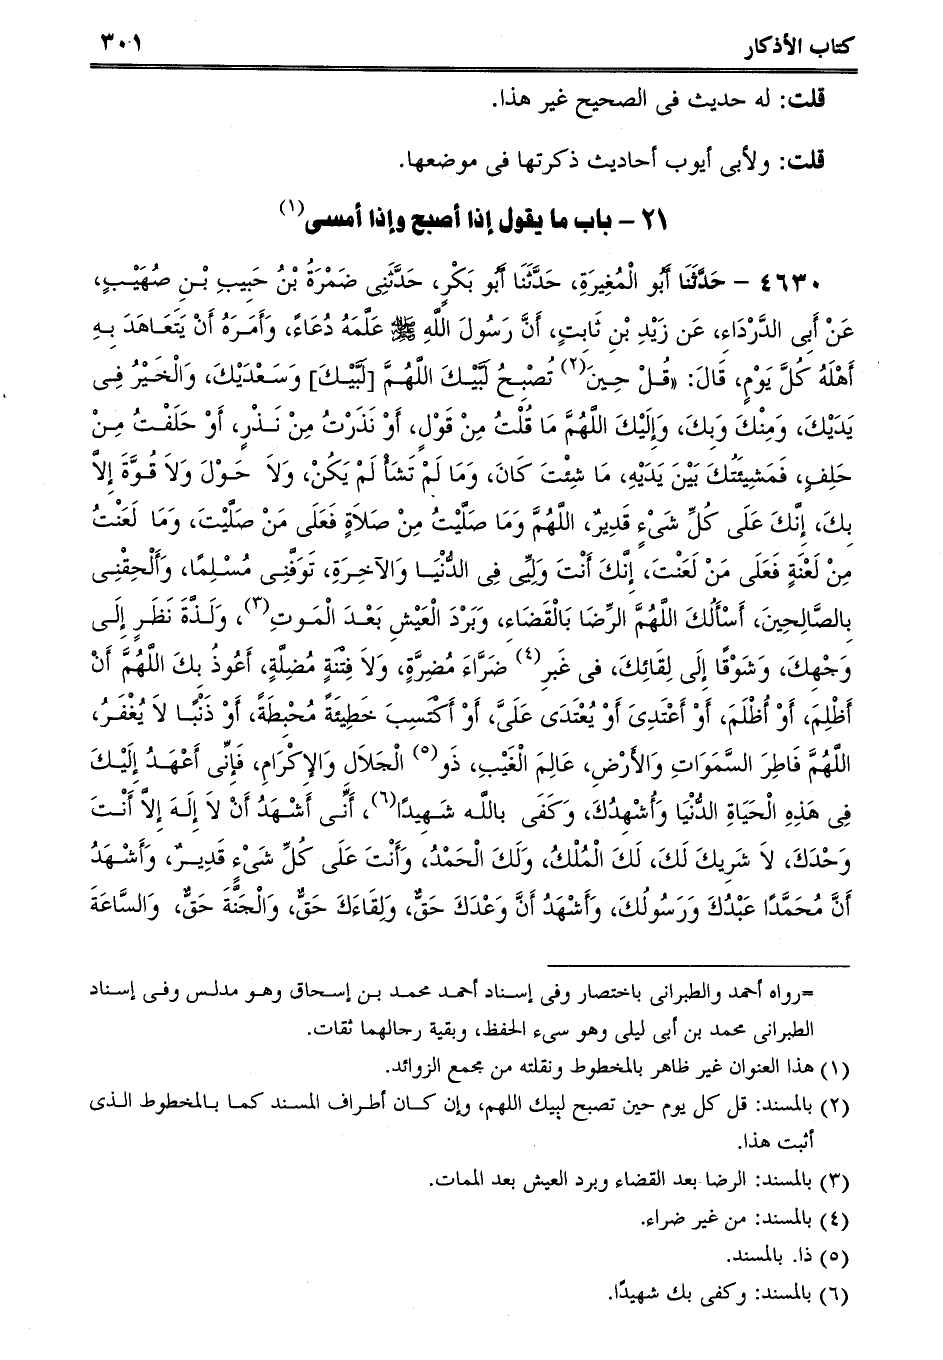 كتاب الأذكار ٣٠١
قلت: له حديث فى الصحيح غير هذا.
قلت: ولأبى أيوب أحاديث ذكرتها فى موضعها.
٢١ - باب ما يقول إذا أصبح وإذا أمسى(١)
٤٦٣٠ - حَدَّثَنَا أَبُو الْمُغِيرَةِ، حَدَّثَنَا أَبُو بَكْرٍ، حَدَّثَنِى ضَمْرَةُ بْنُ حَبِيبِ بْنِ صُهَيْبٍ،
عَنْ أَبِى الدَّرْدَاءِ، عَن زَيْدِ بْنِ ثَابِتٍ، أَنَّ رَسُولَ اللَّهِ ﷺ عَلَّمَهُ دُعَاءً، وَأَمَرَهُ أَنْ يَتَعَاهَدَ بِهِ
أَهْلَهُ كُلَّ يَوْمٍ، قَالَ: «قُلْ حِينَ(٢) تُصْبِحُ لَبَّيْكَ اللَّهُمَّ [لَبَّيْكَ] وَسَعْدَيْكَ، وَالْخَيْرُ فِى
يَدَيْكَ، وَمِنْكَ وَبِكَ، وَإِلَيْكَ اللَّهُمَّ مَا قُلْتُ مِنْ قَوْلٍ، أَوْ نَذَرْتُ مِنْ نَذْرٍ، أَوْ حَلَفْتُ مِنْ
حَلِفٍ، فَمَشِيئَتُكَ بَيْنَ يَدَيْهِ، مَا شِئْتَ كَانَ، وَمَا لَمْ تَشَأْ لَمْ يَكُنْ، وَلاَ حَوْلَ وَلاَ قُوَّةَ إِلاَّ
بِكَ، إِنَّكَ عَلَى كُلِّ شَىْءٍ قَدِيرٌ، اللَّهُمَّ وَمَا صَلَّيْتُ مِنْ صَلاَةٍ فَعَلَى مَنْ صَلَّيْتَ، وَمَا لَعَنْتُ
مِنْ لَعْنَةٍ فَعَلَى مَنْ لَعَنْتَ، إِنَّكَ أَنْتَ وَلِيِّى فِى الدُّنْيَا وَالآخِرَةِ، تَوَفَّنِى مُسْلِمًا، وَأَلْحِقْنِى
بِالصَّالِحِينَ، أَسْأَلُكَ اللَّهُمَّ الرِّضَا بَالْقَضَاءِ، وَبَرْدَ الْعَيْشِ بَعْدَ الْمَوتِ(٣)، وَلَذَّةَ نَظَرٍ إِلَى
وَجْهِكَ، وَشَوْقًا إِلَى لِقَائِكَ، فى غَبرِ(٤) ضَرَّاءَ مُضِرَّةٍ، وَلاَ فِتْنَةٍ مُضِلَّةٍ، أَعُوذُ بِكَ اللَّهُمَّ أَنْ
أَظْلِمَ، أَوْ أُظْلَمَ، أَوْ أَعْتَدِىَ أَوْ يُعْتَدَى عَلَىَّ، أَوْ أَكْتَسِبَ خَطِيئَةً مُحْبِطَةً، أَوْ ذَنْبًا لاَ يُغْفَرُ،
اللَّهُمَّ فَاطِرَ السَّمَوَاتِ وَالأَرْضِ، عَالِمَ الْغَيْبِ، ذَو(٥) الْجَلاَلِ وَالإِكْرَامِ، فَإِنِّى أَعْهَدُ إِلَيْكَ
فِى هَذِهِ الْحَيَاةِ الدُّنْيَا وَأُشْهِدُكَ، وَكَفَى بِاللَّه شَهِيدًا(٦)، أَنِّى أَشْهَدُ أَنْ لاَ إِلَهَ إِلاَّ أَنْتَ
وَحْدَكَ، لاَ شَرِيكَ لَكَ، لَكَ الْمُلْكُ، وَلَكَ الْحَمْدُ، وَأَنْتَ عَلَى كُلِّ شَىْءٍ قَدِيرٌ، وَأَشْهَدُ
أَنَّ مُحَمَّدًا عَبْدُكَ وَرَسُولُكَ، وَأَشْهَدُ أَنَّ وَعْدَكَ حَقٌّ، وَلِقَاءَكَ حَقٌّ، وَالْجَنَّةَ حَقٌّ، وَالسَّاعَةَ
=رواه أحمد والطبرانى باختصار وفى إسناد أحمد محمد بن إسحاق وهو مدلس وفى إسناد
الطبرانى محمد بن أبى ليلى وهو سىء الحفظ، وبقية رحالهما ثقات.
(١) هذا العنوان غير ظاهر بالمخطوط ونقلته من مجمع الزوائد.
(٢) بالمسند: قل كل يوم حين تصبح لبيك اللهم، وإن كان أطراف المسند كما بالمخطوط الذى
أثبت هذا.
(٣) بالمسند: الرضا بعد القضاء وبرد العيش بعد الممات.
(٤) بالمسند: من غير ضراء.
(٥) ذا. بالمسند.
(٦) بالمسند: وكفى بك شهيدًا.